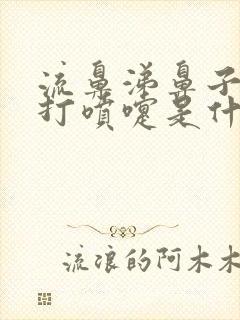 流鼻涕鼻子
打喷嚏是什
流浪的阿木木